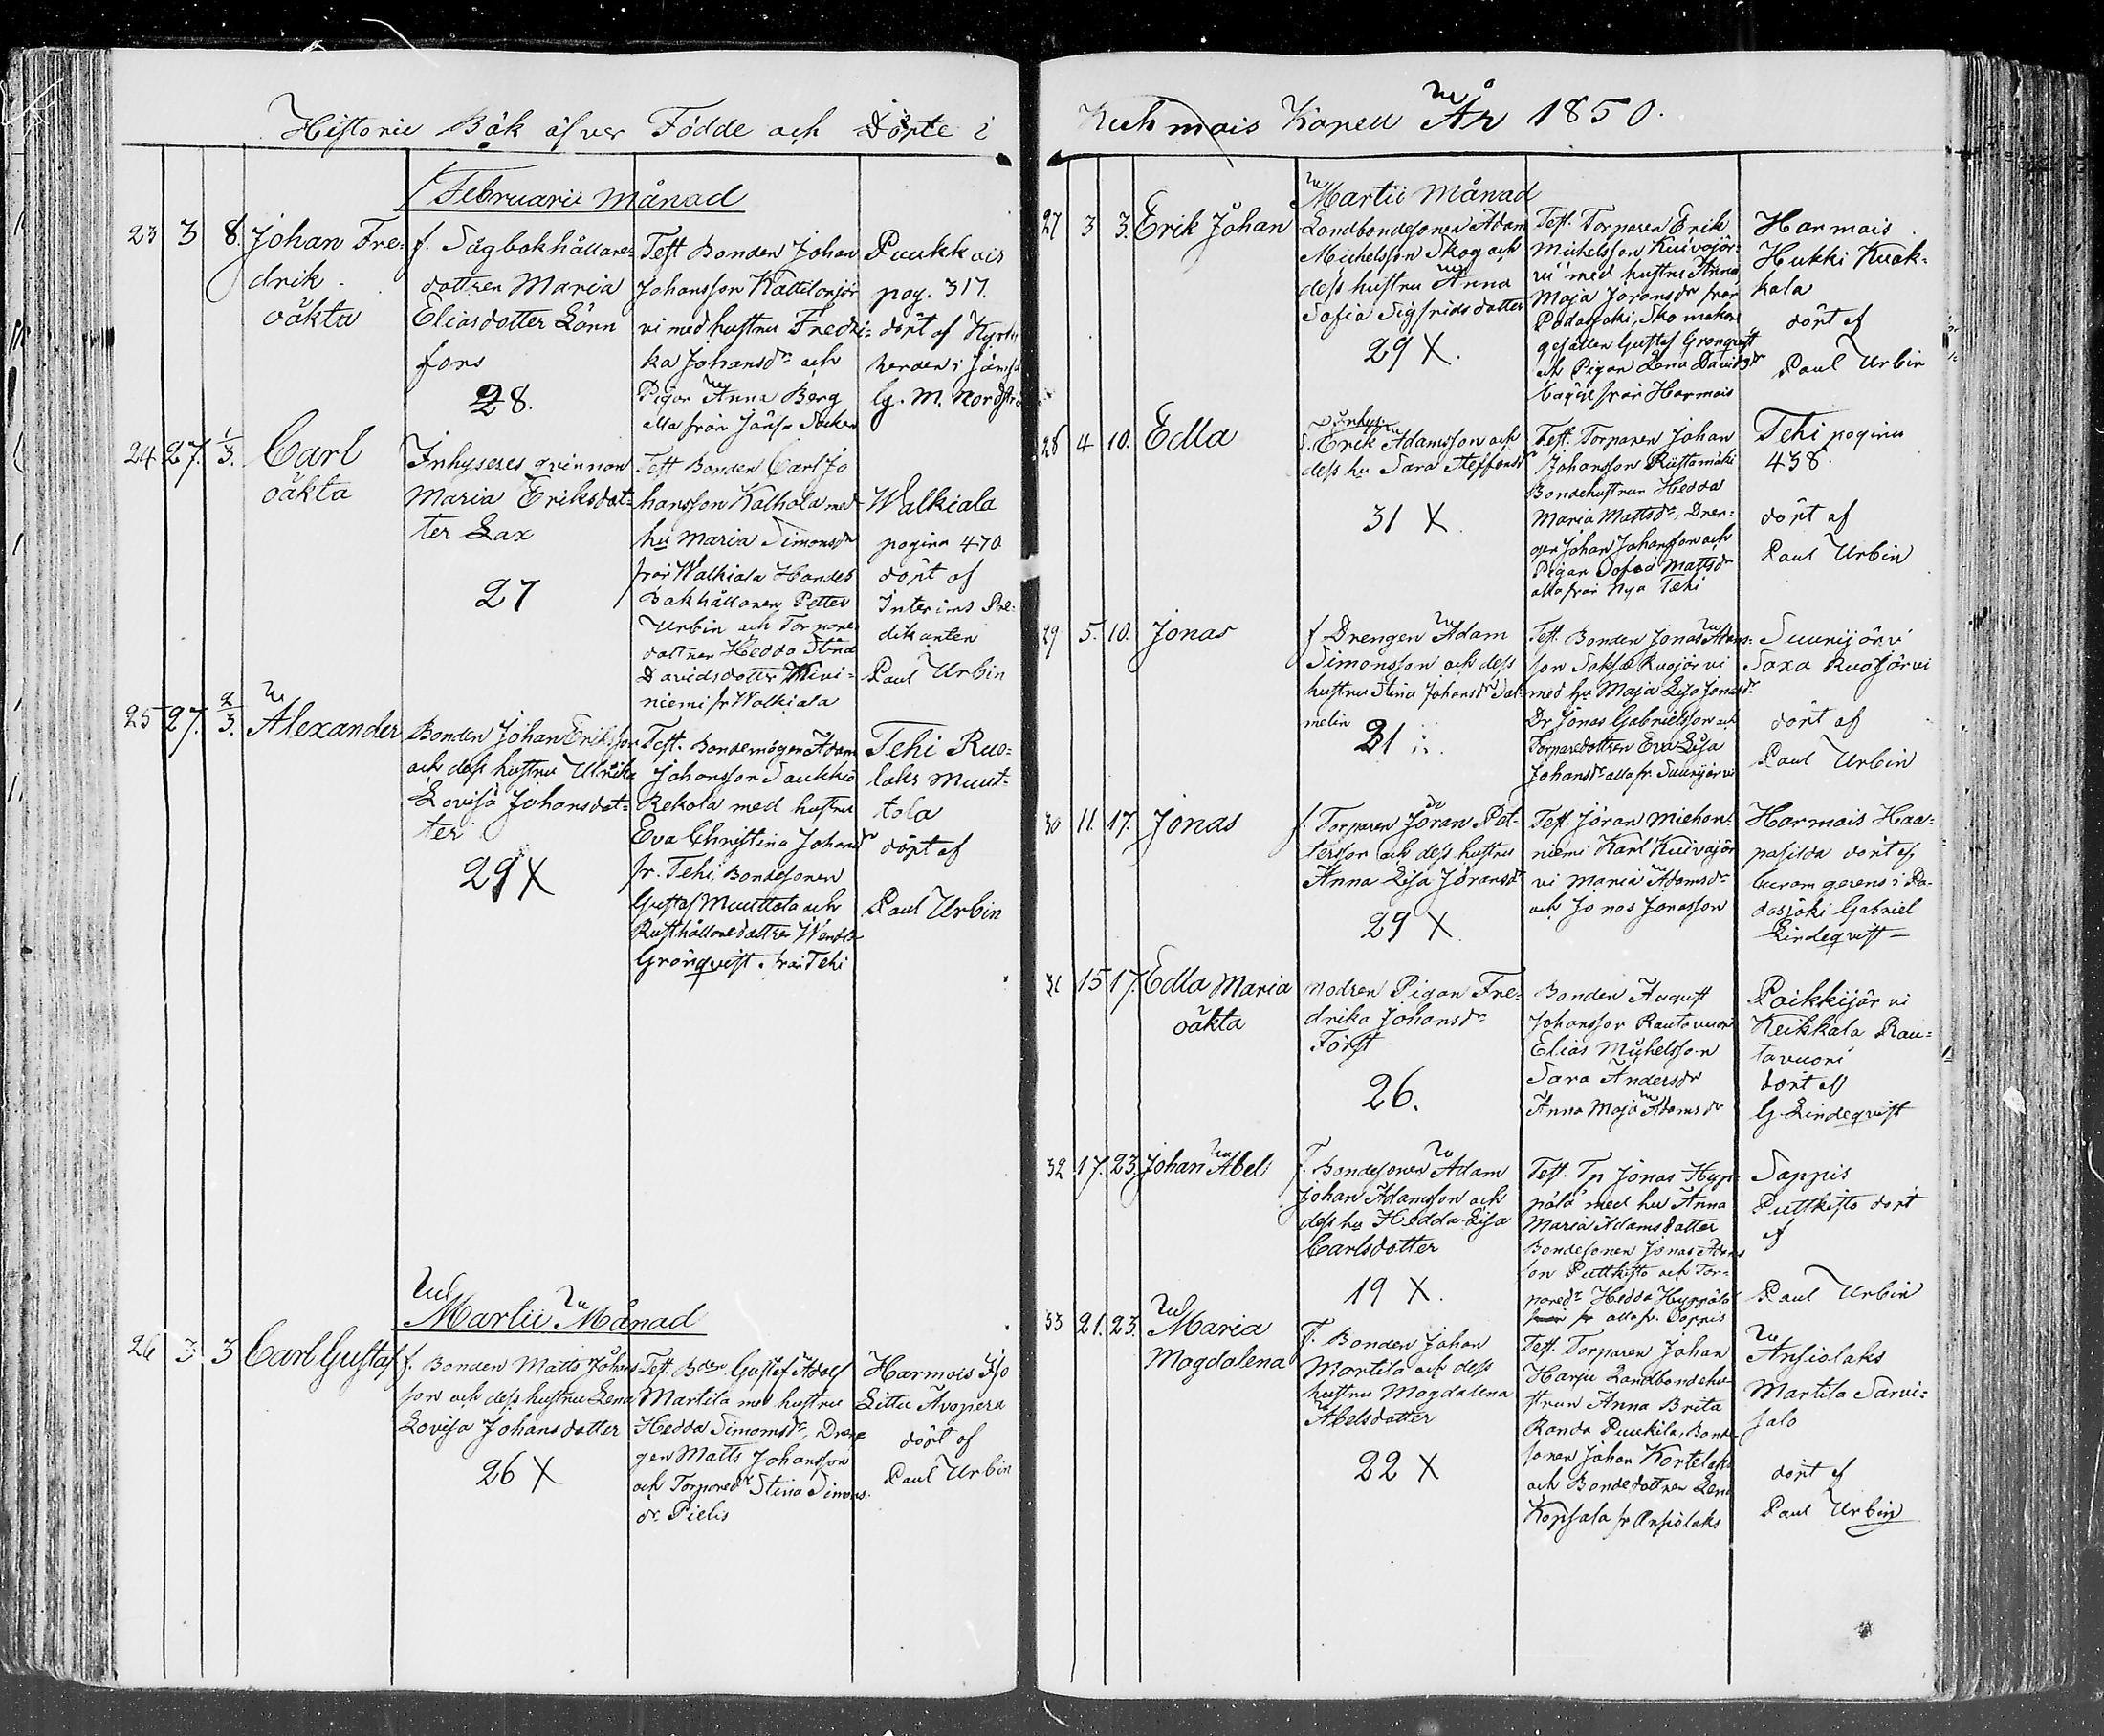 Historie Bok öfver Födde och Döpte i
Februarii månad
23 3 8. Johan Fre-
drik
oäkta
f. Sågbokhållare-
dottren Maria
Eliasdotter Lönn
fors
28.
Test Bonden Johan
Johansson Kattilanjär
vi med hustru Fredri-
ka Johansdr och
Pigan Anna Berg
alla från Jämsä Socken
Puukkois
pag. 317.
döpt af Kyrko
herden i Jämsä
G. M. Nordstr
24 27. 1/3. Carl
oäkta
Inhyseses qvinnan
Maria Eriksdot-
ter Lax
27
Test Bonden Carl Jo
hansson Kalhola med
hu Maria Simonsdr
från Walkiala Handels
Bokhållaren Petter
Urbin och Torpare
dottren Hedda Stina
Davidsdotter Kivi-
niemi fr Walkiala
Walkiala
pagina 470
döpt af
Interims Pre-
dikanten
Paul Urbin
25 27. 2/3. Alexander
Bonden Johan Eriksson
och dess hustru Ulrika
Lovisa Johansdot-
ter
29 X
Test. Bondemågen Adam
Johansson Saukkio
Rekola med hustru
Eva Christina Johansdr
fr. Tehi, Bondesonen
Gustaf Muuttola och
Rusthållaredottren Wendla
Grönqvist från Tehi
Tehi Ruo-
laks Muut-
tola
döpt af
Paul Urbin
Martii Månad
26 3. 3 Carl Gustaf
f. Bonden Matts Johans
son och dess hustru Lena
Lovisa Johansdotter
26 X
Test. Bden Gustaf Adolf
Martila med hustru
Hedda Simonsdr, Dren
gen Matts Johansson
och Torparedr Stina Simons
dr Pielis
Harmois Iso
Littu Avopera
döpt af
Paul Urbin
Kuhmois Kapell År 1850.
Martii Månad
27 3 3. Erik Johan
Landbondesonen Adam
Michelsson Skog och
dess hustru Anna
Sofia Sigfridsdotter
29 X.
Test. Torparen Erik
Michelsson Kuivajär-
vi med hustru Anna
Maja Joransdr från
Padasjoki, Skomakare
gesällen Gustaf Grönqvist
och Pigan Lena Davidsdr
från Harmois
Harmois
Hukki Kuok-
kala
döpt af
Paul Urbin
28 4 10. Edla
Inhys.
f. Erik Adamsson och
dess hu Sara Steffansdr
31 X.
Test. Torparen Johan
Johansson Riistamäki
Bondehustrun Hedda
Maria Mattsdr, Dren-
gen Johan Johansson och
Pigan Sofia Mattsdr
alla från Nya Tehi
Tehi pagina
438.
döpt af
Paul Urbin
29 5. 10. Jonas
f Drengen Adam
Simonsson och dess
hustru Stina Johansdr Sal-
melin
31
Test. Bonden Jonas Adams-
son Saksa Ruojärvi
med hu Maja Lisa Jonasdr
Dr Jonas Gabrielsson och
Torparedottren Eva Lisa
Johansdr alla fr. Suurijärvi
Suurijärvi
Saxa Ruojärvi
döpt af
Paul Urbin
30 11. 17. Jonas
f. Torparen Jöran Pet-
tersson och dess hustru
Anna Lisa Jöransdr
29 X.
Test. Jöran Miehon-
niemi Karl Kuivajär
vi Maria Adamsdr
och Jonas Jonasson
Harmois Haa-
pasilda döpt af
Curam gerens i Pa-
dasjoki Gabriel
Lindeqvist
31 15 17. Edla Maria
oäkta
Modren Pigan Fre-
drika Johansdr
Först
26.
Bonden August
Johansson Rautavuori
Elias Michelsson
Sara Andersdr
Anna Maja Adamsdr
Paikkijärvi
Keikkala Rau-
tavuori
döpt af
G. Lindeqvist
32 17. 23. Johan Abel
f. Bondesonen Adam
Johan Adamsson och
dess hu Hedda Lisa
Carlsdotter
19 X.
Test. Tp Jonas Hyp-
pälä med hu Anna
Maria Adamsdotter
Bondesonen Jonas Adams
son Puttkisto och Tor-
paredr Hedda Hyppälä
alla fr. Sappis
Sappis
Puttkisto döpt
af
Paul Urbin
33 21. 23. Maria
Magdalena
f. Bonden Johan
Martila och dess
hustru Magdalena
Abelsdotter
22 X
Test. Torparen Johan
Harju Landbondehu-
strun Anna Brita
Randa Puukila, Bonde
sonen Johan Kortelaks
och Bondedottren Lena
Kopsala fr Ansiolaks
Ansiolaks
Martila Sarvi-
salo
döpt af
Paul Urbin